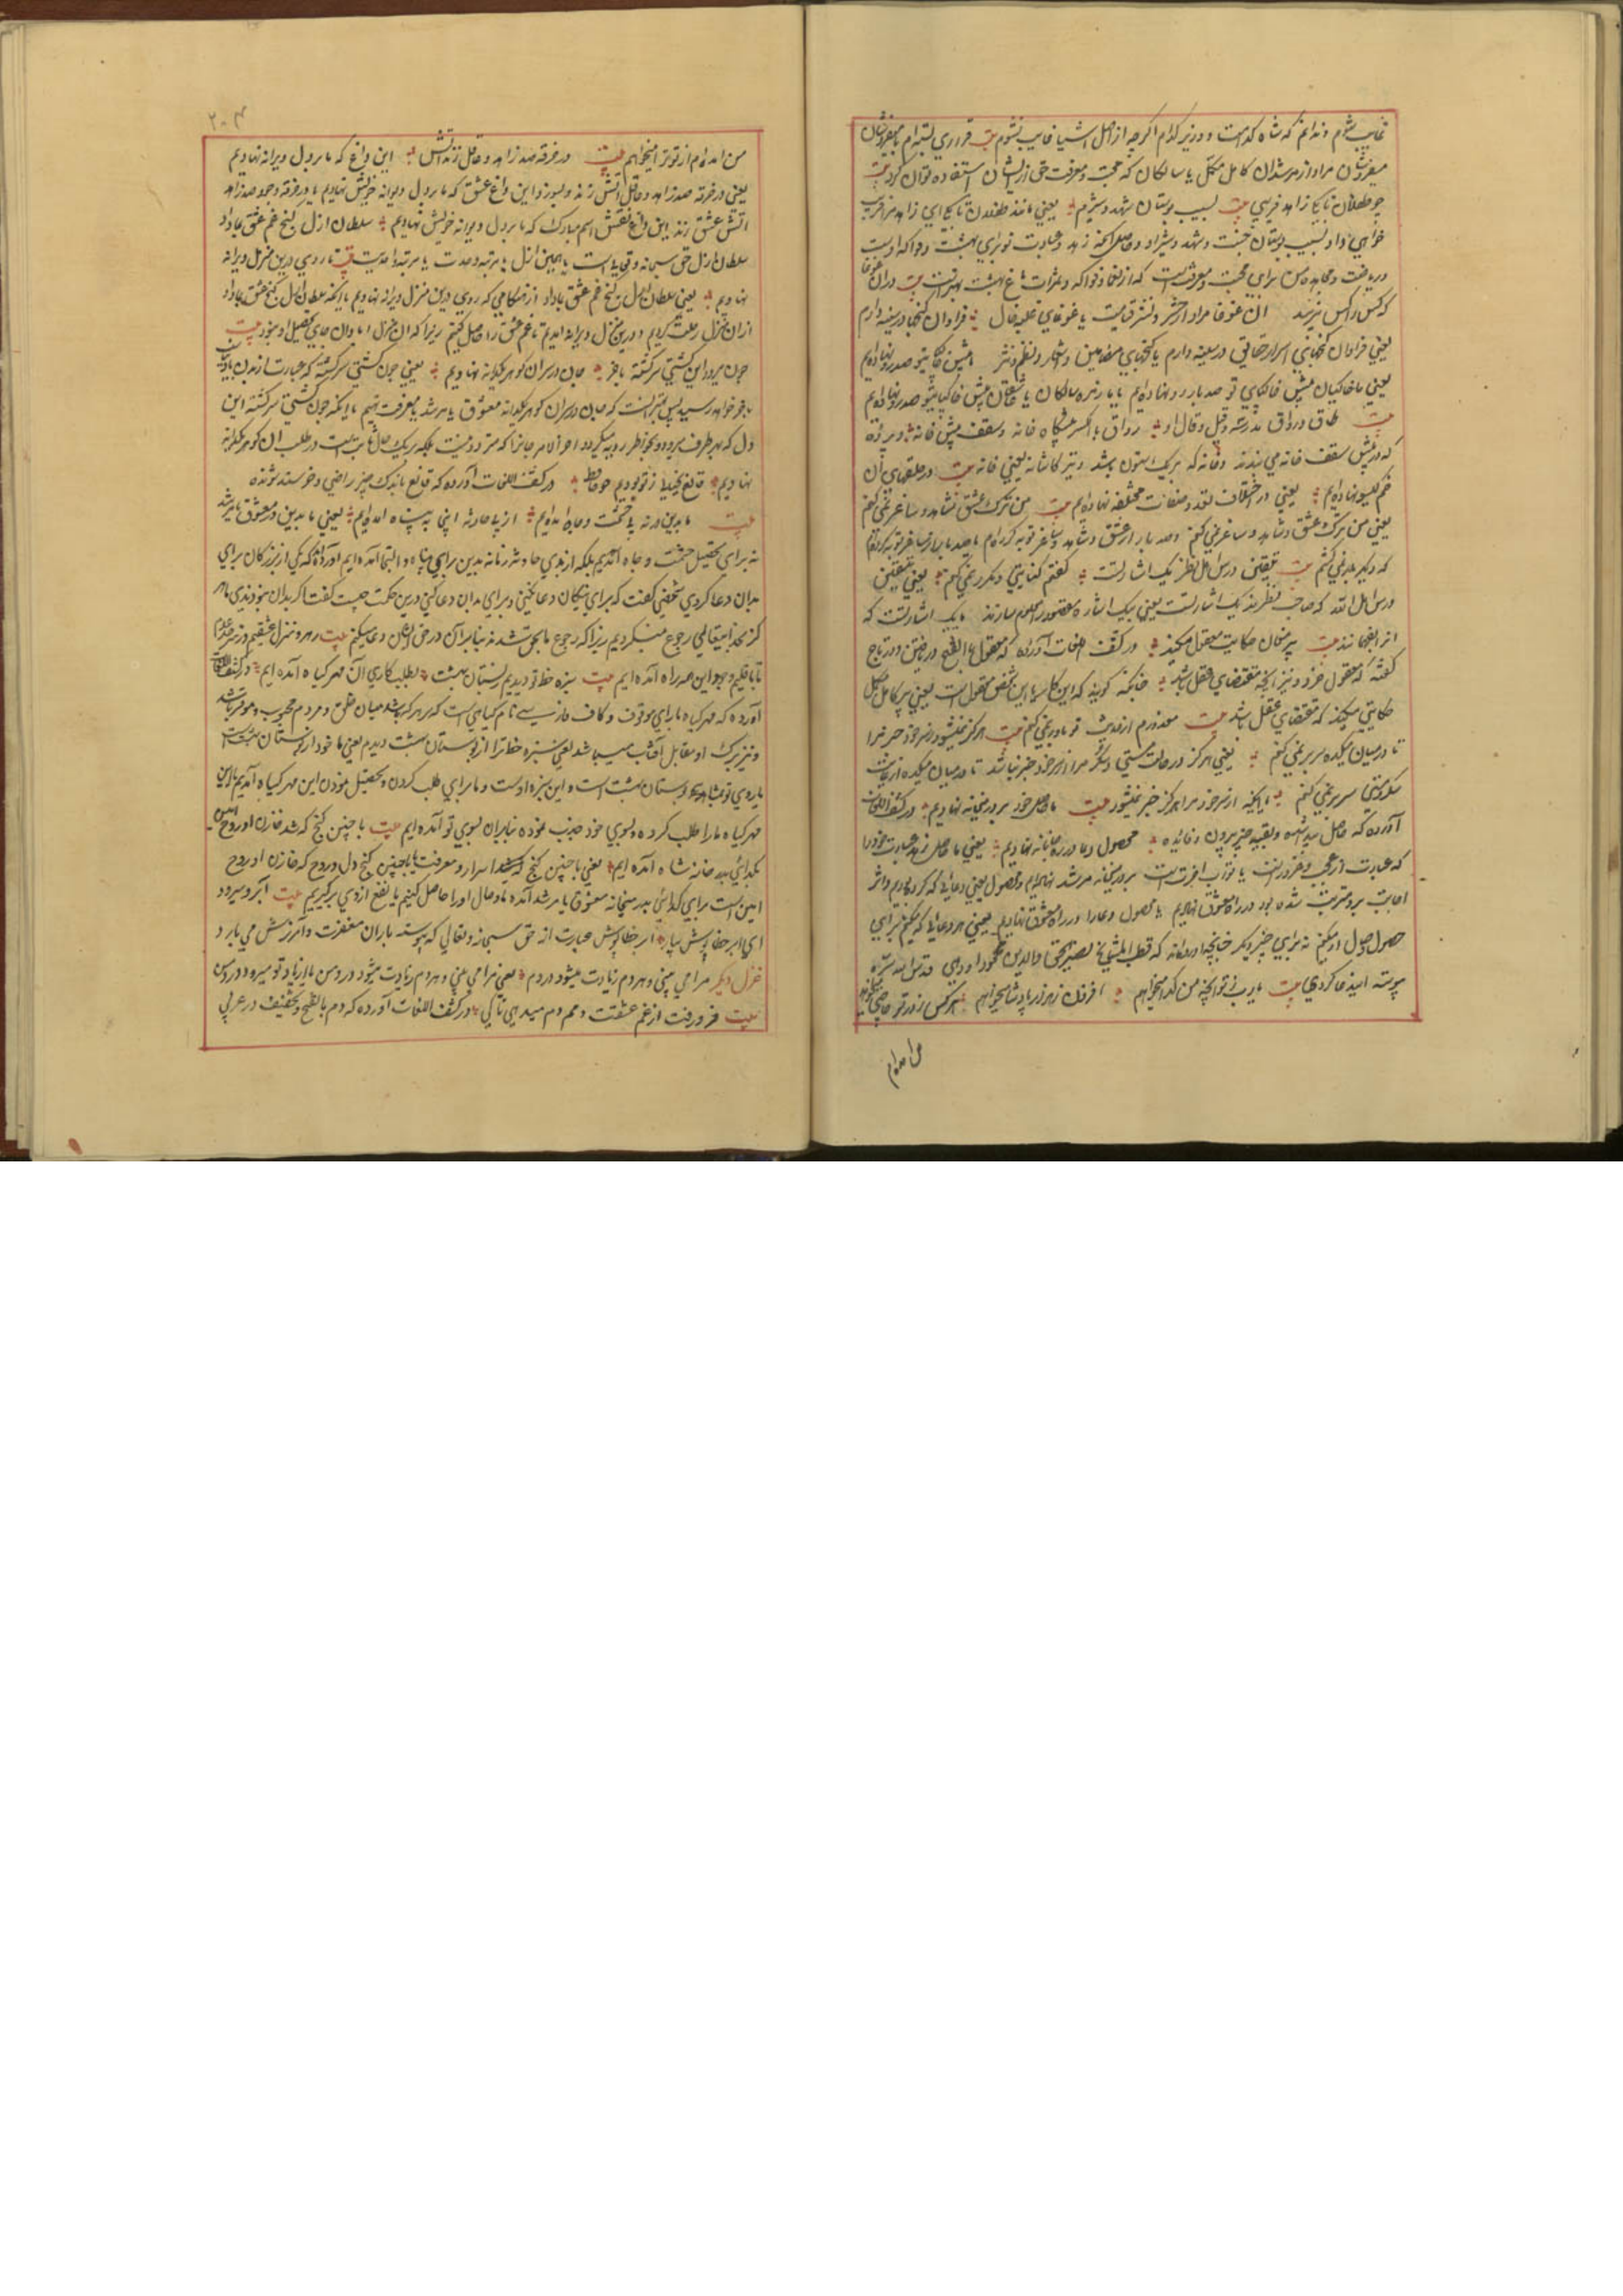 غایب شوم و ندانم که شاه کدامست و وزیر کدام اگرچه از اصل اشیا غایب نشوم بیت قراری بسته‌ام با میفروشان
میفروشان مراد از مرشدان کامل مکمل یا سالکان که محبت و معرفت حق ازیشان استفاده توان کرد بیت
چو طفلان تا کی زاهد فریبی بیت بسیب بوستان شهد و شیرم یعنی مانند طفلان تا کی ای زاهد مرا فریب
خواهی داد بسیب بوستان جنت و شهد و شیر او و حاصل آنکه زهد و عبادت تو برای بهشت و فواکه اوست
و ریاضت و مجاهده من برای محبت و معرفتست که از نعما و فواکه و ثمرات باغ بهشت بهترست بیت دران غوغا
که کس کس را نپرسد ان غوغا مراد از حشر و نشر قیامت یا غوغای غلبه حال فراوان گنجها در سینه دارم
یعنی فراوان گنجهای اسرار حقایق در سینه دارم یا گنجهای مضامین و اشعار و نظم و نثر
یعنی ما خاکیان پیش خاکپای تو صد بار رو نهاده‌ایم یا زمره سالکان یا عاشقان پیش خاکپای تو صد رو نهاده‌ایم
بیت طاق و رواق مدرسه و قیل و قال او رواق بالکسر پیشگاه خانه و سقف پیش خانه و پرده
که در پیش سقف خانه می بندند و خانه که بریک استون باشد و نیز کاشانه یعنی خانه بیت در حلقهای آن
خم گیسو نهاده‌ایم یعنی در اختلاف تعدد صفات مختلفه نهاده‌ایم بیت من ترک عشق شاهد و ساغر نمی کنم
یعنی من ترک عشق و شاهد و ساغر نمی کنم و صد بار از عشق و شاهد و ساغر توبه کرده‌ام
که دیگر بار نمی کنم بیت تلقین و درس اهل نظر یک اشارتست گفتم کنایتی و مکرر نمی کنم یعنی تلقین
درس اهل الله که صاحب نظرند یک اشارتست یعنی بیک اشاره مقصود را معلوم سازند یا یک اشارتست که
بیت پیر مغان حکایت معقول میکند در کشف اللغات آورده که معقول بالفتح دریافتن و در تاج
گفته که معقول خرد و نیز آنچه مقتضای عقل باشد چنانکه گویند که این کار یا این شخص معقول است یعنی پیر کامل مکمل
حکایتی میکند که مقتضای عقل باشد بیت معذورم از حدیث تو باور نمی کنم بیت هرگز نمیشود ز سر خود خبر مرا
تا در میان میکده سر بر نمی کنم یعنی هرگز در حالت مستی و سکر مرا از سر خود خبر نباشد تا در میان میکده از غایت
سکر و مستی سر بر نمی کنم یا آنکه از سر خود مرا هرگز خبر نمیشود بیت ما حاصل خود بر در میخانه نهادیم در کشف اللغات
آورده که حاصل پیدا شده و بقیه چیز بیرون و فائده محصول دعا در ره جانانه نهادیم یعنی ما حاصل زهد و عبادت خود را
که عبارت از عجب و غرورست یا ثواب اخرتست بر در میخانه مرشد نهادیم و محصول یعنی دعائی که کرده بودیم و اثر
اجابت برو مترتب شده بود در راه معشوق نهادیم یا محصول دعا را در راه معشوق نهادیم یعنی هر دعائی که میکنم برای
حصول وصول او میکنم نه برای چیز دیگر چنانچه آورده‌اند که قطب المشایخ نصیر الحق والدین محمود اودهی قدس الله سره
پیوسته این دعا کردی بیت یارب ز تو آنچه من گدا میخواهم افزون ز هزار پادشا میخواهم هر کس ز در تو حاجتی میخواهد
من امده‌ام
۲۰۴
من امده‌ام از تو ترا میخواهم بیت در خرقه صد زاهد و عاقل زند آتش این داغ که ما بر دل دیوانه نهادیم
یعنی در خرقه صد زاهد و عاقل آتش زند و بسوزد این داغ عشق که ما بر دل دیوانه خویش نهادیم یا در خرقه وجود صد زاهد
آتش عشق زند این داغ نقش اسم مبارک که ما بر دل دیوانه خویش نهادیم سلطان ازل گنج غم عشق بما داد
سلطان ازل حق سبحانه و تعالی است یا همین ازل یا مرتبه وحدت یا مرتبه واحدیت بیت تا روی درین منزل ویرانه
نهادیم یعنی سلطان ازل گنج غم عشق بما داد از هنگامی که روی درین منزل ویرانه نهادیم یا آنکه سلطان ازل گنج عشق بما داد
ازان منزل رحلت کردیم و درین منزل ویرانه امدیم تا غم عشق را حاصل کنیم زیرا که ان منزل ابادان جای تحصیل او نبود بیت
چون میرود این کشتی سرگشته باخر جان در سر ان گوهر یکدانه نهادیم یعنی چون کشتی سرگشته که عبارت از بدن
باخر خواهد رسید پس بهتر انست که جان در سر ان گوهر یکدانه معشوق یا مرشد یا معرفت نهیم یا انکه چون کشتی سرگشته این
دل که بهر طرف میرود و بخواطر ردیه میگردد اخر الامر جانرا که متردد نیست بلکه بریک حال ثابت است در طلب ان گوهر یکدانه
نهادیم قانع بخیالی ز تو بودیم چو حافظ در کشف اللغات آورده که قانع باندک چیز راضی و خرسند شونده
بیت ما بدین در نه پی حشمت و جاه امده‌ایم از بد حادثه اینجا به پناه امده‌ایم یعنی ما بدین در معشوق یا مرشد
نه برای تحصیل حشمت و جاه آمدیم بلکه از بدی حادثه زمانه بدین در برای پناه و التجا آمده‌ایم آورده‌اند که یکی از بزرگان برای
بدان دعا کردی شخصی گفت که برای نیکان دعا نکنی و برای بدان دعا کنی درین حکمت چیست گفت اگر بدان نبودندی ما هر
گز بخدایتعالی رجوع نمیکردیم زیرا که رجوع ما بحق شد بنابران در حق ایشان دعا میکنم بیت رهرو منزل عشقیم و ز سرحد عدم
تا باقلیم وجود این همه راه آمده‌ایم بیت سبزه خط تو دیدیم ز بستان بهشت بطلبکاری آن مهر گیاه آمده‌ایم در کشف اللغات
آورده که مهر گیاه بارای موقوف و کاف فارسی نام گیاهی است که بر هر که باشد میان خلق و مردم محبوب و موقر باشد
و نیز برگ او مقابل آفتاب میباشد یعنی سبزه خط ترا از بوستان بهشت دیدیم یعنی ما خود از بوستان بهشت
یا روی تو بمثابه بوستان بهشت است و این سبزه اوست و ما برای طلب کردن و تحصیل نمودن این مهر گیاه آمدیم یا این
مهر گیاه ما را طلب کرده و بسوی خود جذب نموده بنابران بسوی تو آمده‌ایم بیت با چنین گنج که شد خازن او روح امین
بگدائی بدر خانه شاه آمده‌ایم یعنی با چنین گنج اسرار و معرفت یا با چنین گنج دل و روح که خازن او روح
امین است برای گدائی بدر میخانه معشوق یا مرشد آمده‌ام وصال او را حاصل کنیم یا نفع ازوی برگیریم بیت آبرو میرود
ای ابر خطا پوش ببار ابر خطا پوش عبارت از حق سبحانه و تعالی که پیوسته باران مغفرت و آمرزش می بارد
غزل دیگر مرا می بینی و هر دم زیادت میشود دردم یعنی مرا می بینی و هر دم زیادت میشود درد من یا از یاد تو میرود درد من
بیت فرو رفت از غم عشقت دمم دم میدهی تا کی در کشف اللغات آورده که دم بالفتح و تخفیف در عربی